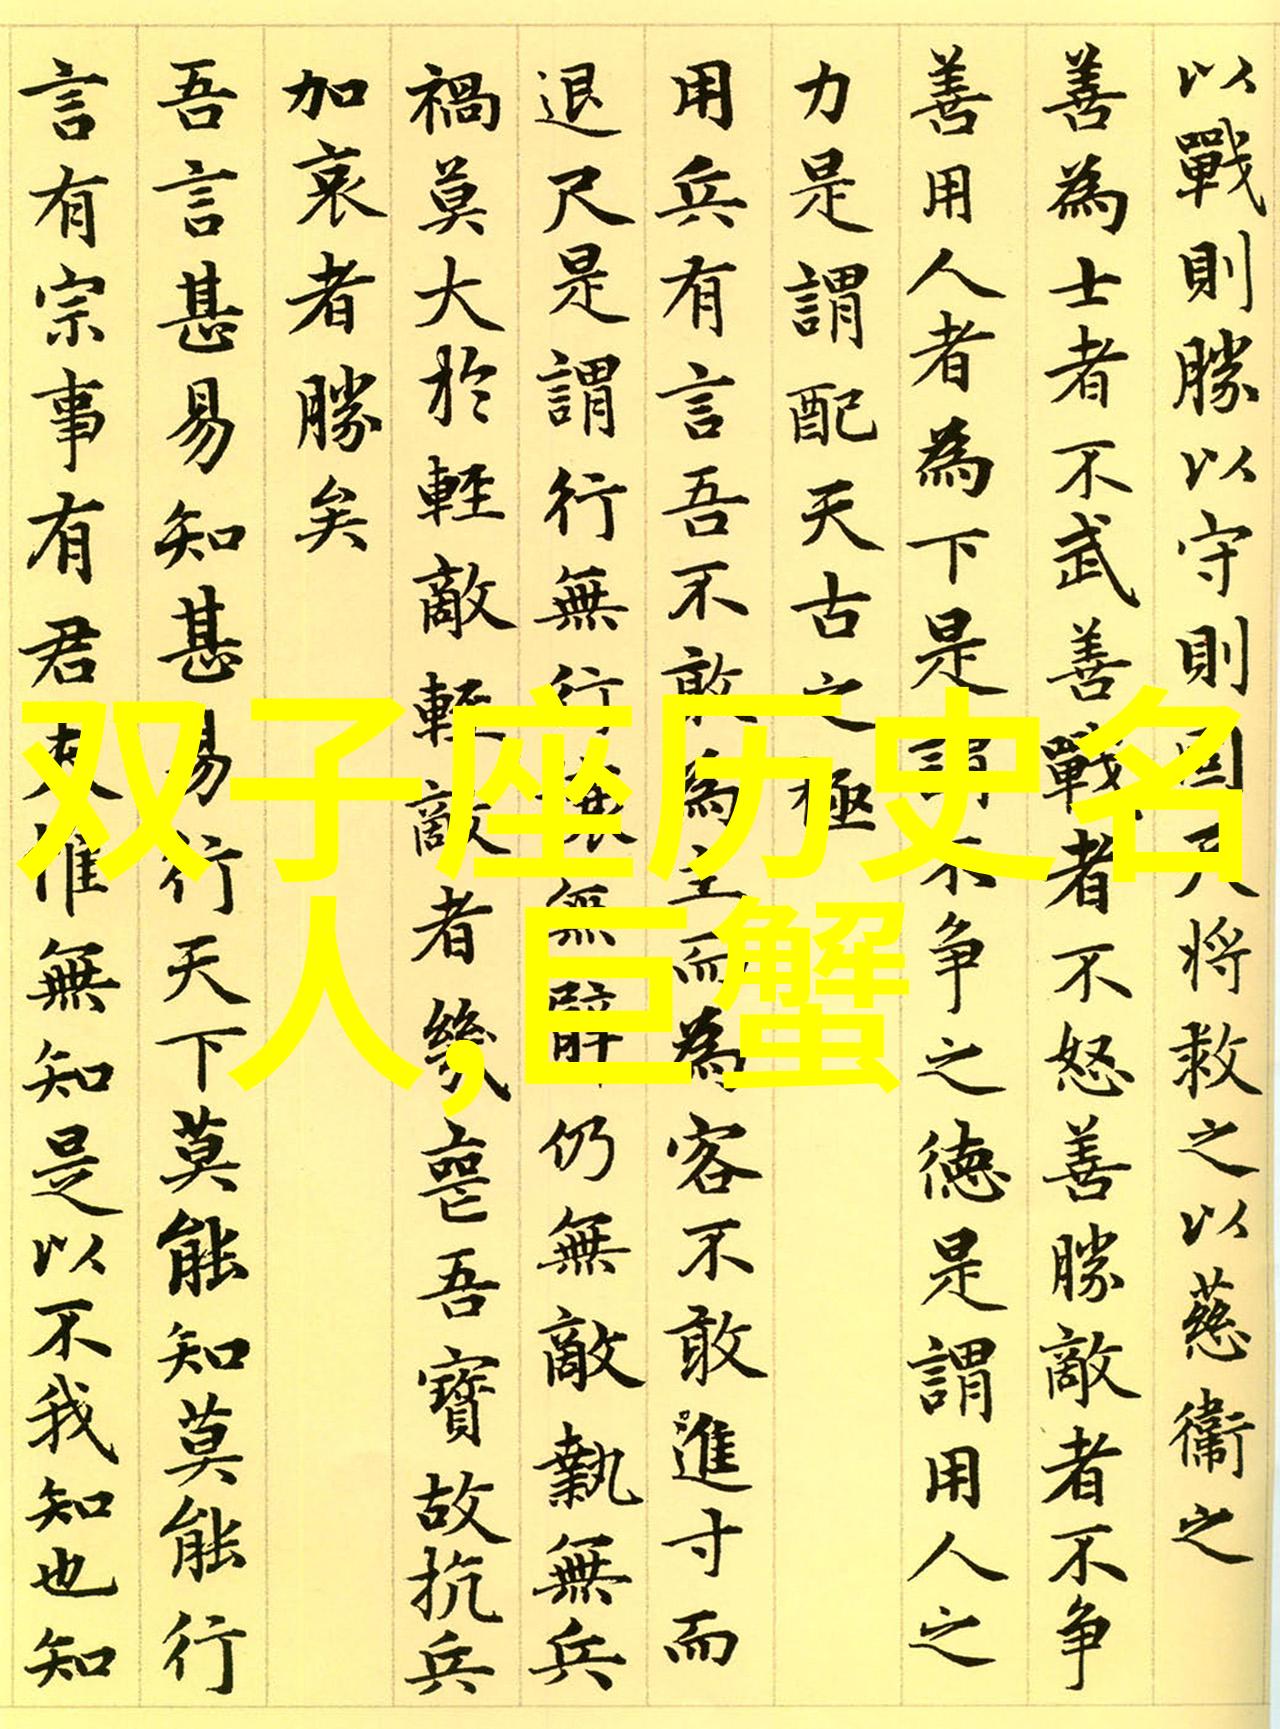 以戰則勝以守則固天将救之以慈衞之
善為士者不武善戰者不怒善勝敵者不争
善用人者為下是謂不争之德是謂用人之
力是謂配天古之極
用兵有言吾不敢為主而為客不敢進寸而
退尺是謂行無行攘無臂仍無敵執無兵
禍莫大於輕敵輕敵者幾喪吾寳故抗兵
加哀者勝矣
吾言甚易知甚易行天下莫能知莫能行
言有宗事有君夫惟無知是以不我知也知
双子座历史名
人,巨蟹